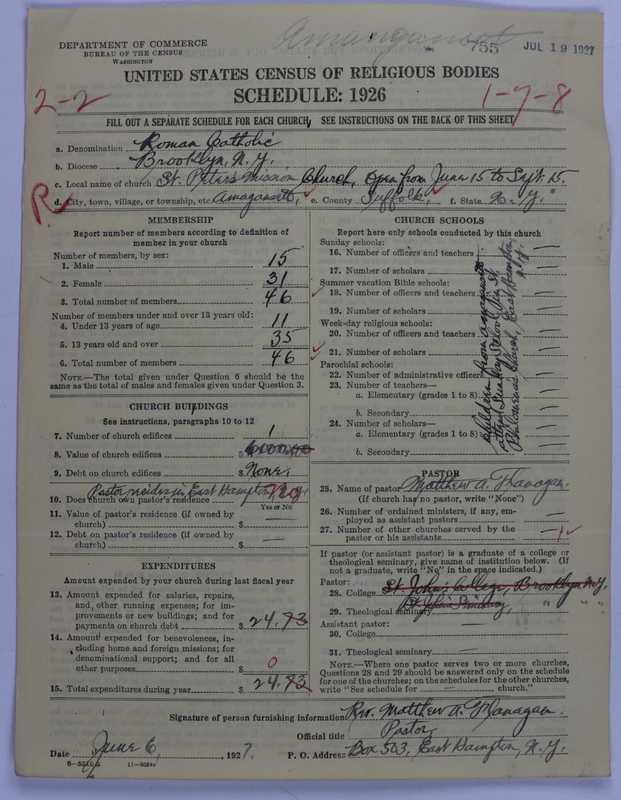 Amagansett
755 JUL 19 1927
DEPARTMENT OF COMMERCE
BUREAU OF THE CENSUS
WASHINGTON
UNITED STATES CENSUS OF RELIGIOUS BODIES
SCHEDULE: 1926
2-2 1-7-8
FILL OUT A SEPARATE SCHEDULE FOR EACH CHURCH, SEE INSTRUCTIONS ON THE BACK OF THIS SHEET
a. Denomination Roman Catholic
b. Diocese Brooklyn, N.Y.
c. Local name of church St. Peter's Mission Church, Open from June 15 to Sept. 15.
R
d. City, town, village, or township, etc. Amagansett, e. County Suffolk, f. State N.Y.
MEMBERSHIP
Report number of members according to definition of
member in your church
Number of members, by sex:
1. Male 15
2. Female 31
3. Total number of members 46
Number of members under and over 13 years old:
4. Under 13 years of age 11
5. 13 years old and over 35
6. Total number of members 46
NOTE.—The total given under Question 6 should be the
same as the total of males and females given under Question 3.
CHURCH BUILDINGS
See instructions, paragraphs 10 to 12
7. Number of church edifices 1
8. Value of church edifices $
9. Debt on church edifices $ None.
Pastor resides in East Hampton, N.Y. No
10. Does church own pastor's residence
Yes or No
11. Value of pastor's residence (if owned by
church) $ —
12. Debt on pastor's residence (if owned by
church) $ —
EXPENDITURES
Amount expended by your church during last fiscal year
13. Amount expended for salaries, repairs,
and other running expenses; for im-
provements or new buildings; and for
payments on church debt $ 24.73
14. Amount expended for benevolences, in-
cluding home and foreign missions; for
denominational support; and for all
other purposes 0
15. Total expenditures during year $ 24.73
CHURCH SCHOOLS
Report here only schools conducted by this church
Sunday schools:
16. Number of officers and teachers —
17. Number of scholars —
Summer vacation Bible schools:
18. Number of officers and teachers —
19. Number of scholars —
Week-day religious schools:
20. Number of officers and teachers —
21. Number of scholars —
Parochial schools:
22. Number of administrative officers —
23. Number of teachers—
a. Elementary (grades 1 to 8) —
b. Secondary —
24. Number of scholars—
a. Elementary (grades 1 to 8) —
b. Secondary —
Children from Amagansett
attend Sunday School in St.
Philomena's Church, East Hampton,
N.Y.
PASTOR
25. Name of pastor Matthew A. Flanagan.
(If church has no pastor, write "None")
26. Number of ordained ministers, if any, em-
ployed as assistant pastors —
27. Number of other churches served by the
pastor or his assistants 1
If pastor (or assistant pastor) is a graduate of a college or
theological seminary, give name of institution below. (If
not a graduate, write "No" in the space indicated.)
Pastor:
28. College St. John's College, Brooklyn N.Y.
29. Theological seminary St. John's Seminary, " " "
Assistant pastor:
30. College —
31. Theological seminary —
NOTE.—Where one pastor serves two or more churches,
Questions 28 and 29 should be answered only on the schedule
for one of the churches; on the schedules for the other churches,
write "See schedule for — church."
Signature of person furnishing information Rev. Matthew A. Flanagan.
Official title Pastor,
Date June 6, 1927. P. O. Address Box 503, East Hampton, N.Y.